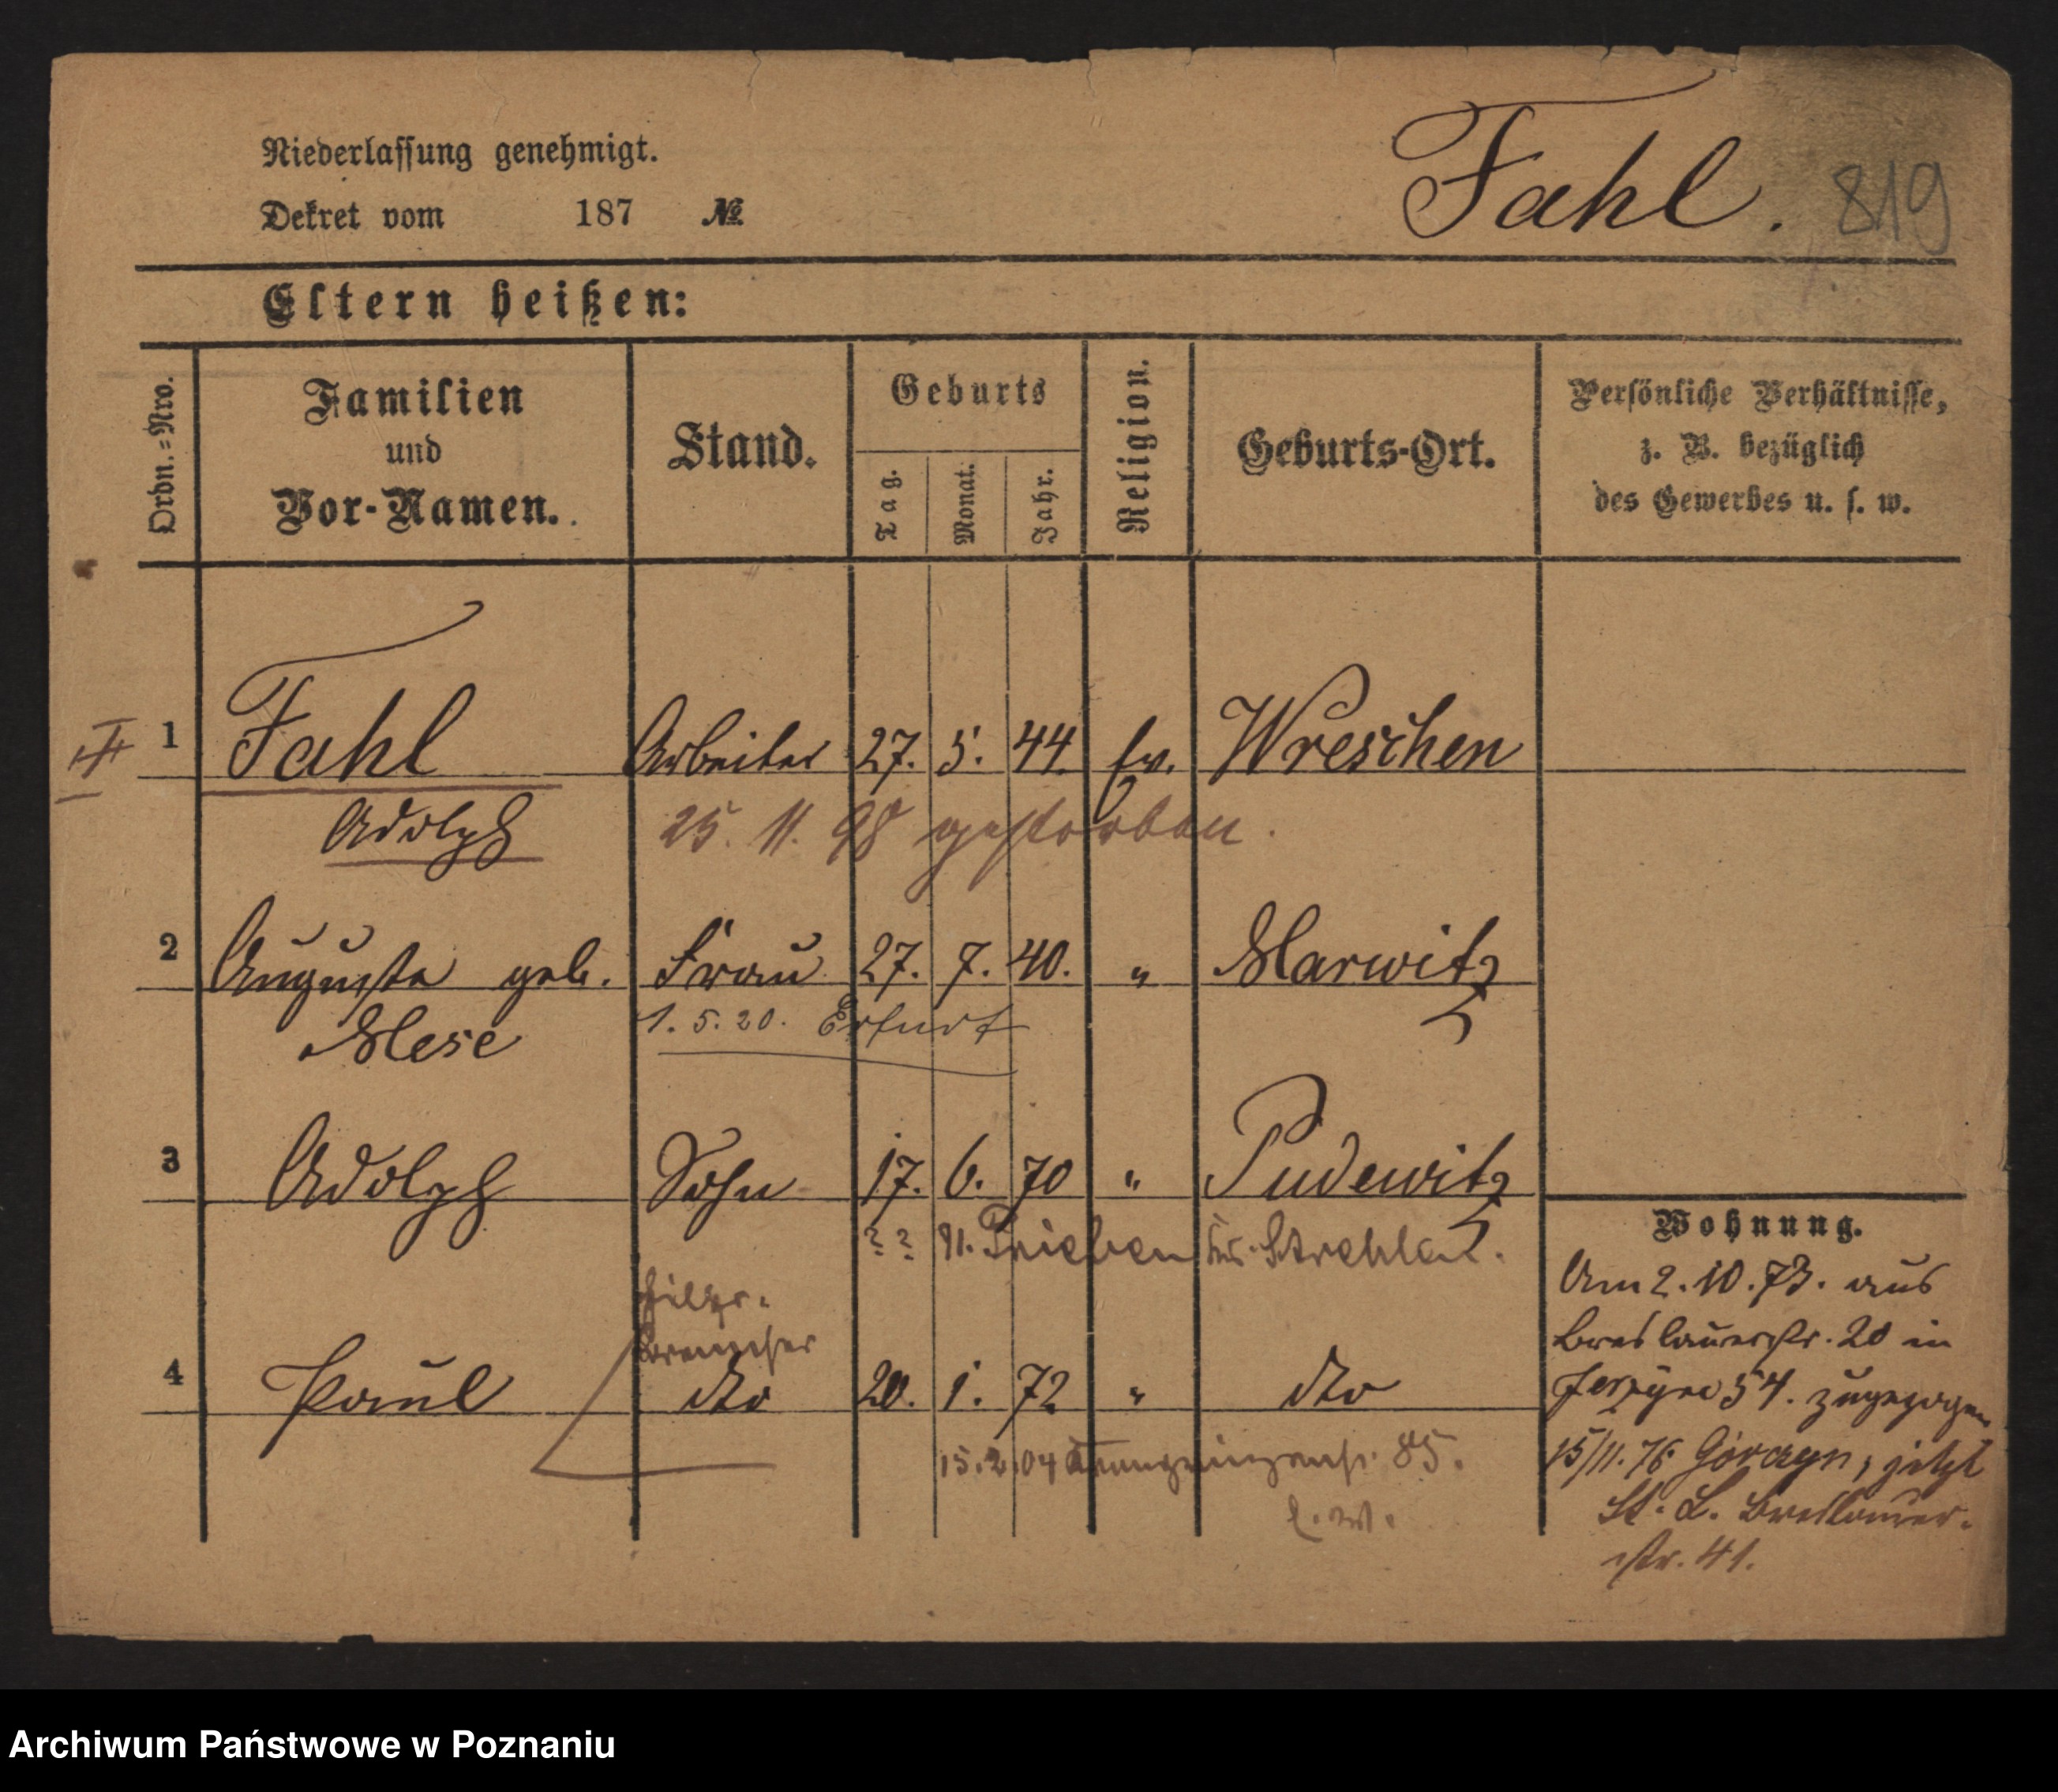 Niederlassung genehmigt.
Dekret vom 187 №
Fahl. 819
Eltern heißen:
Ordn.-Nro.
Familien
und
Vor-Namen.
Stand.
Geburts
Tag.
Monat.
Jahr.
Religion.
Geburts-Ort.
Persönliche Verhältnisse,
z. B. bezüglich
des Gewerbes u. s. w.
1 Fahl Arbeiter 27. 5. 44. ev. Wreschen
Adolph 25. 11. 98 gestorben.
2 Auguste geb. Frau 27. 7. 40. " Marwitz
Mese 1. 5. 20. Erfurt
3 Adolph Sohn 17. 6. 70 " Pudewitz
? ? 91. Prieben Kr. Strehlen.
Hilfs-
bremser
4 Paul dto 20. 1. 72 " dto
15. 2. 04 Kronprinzenstr. 85.
Wohnung.
Am 2. 10. 73. aus
Breslauerstr. 20 in
Jerzyce 54. zugezogen
15/11. 76 Górczyn, jetzt
St. L. Breslauer-
str. 41.
Archiwum Państwowe w Poznaniu